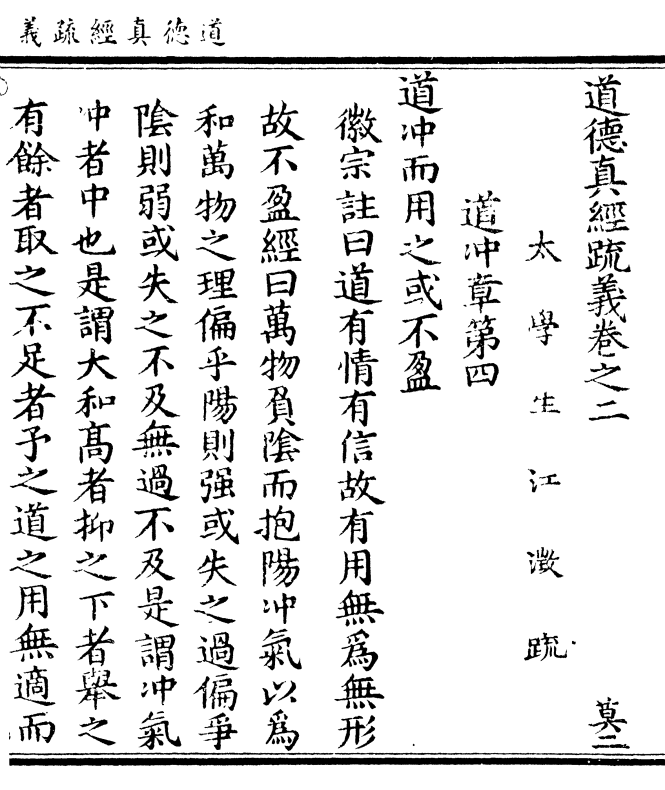 道德真經疏義
道德真經疏義卷之二 莫二
太學生江澂疏
道沖章第四
道沖而用之或不盈
徽宗註曰道有情有信故有用無爲無形
故不盈經曰萬物負陰而抱陽沖氣以爲
和萬物之理偏乎陽則强或失之過偏乎
陰則弱或失之不及無過不及是謂沖氣
沖者中也是謂大和髙者抑之下者舉之
有餘者取之不足者予之道之用無適而